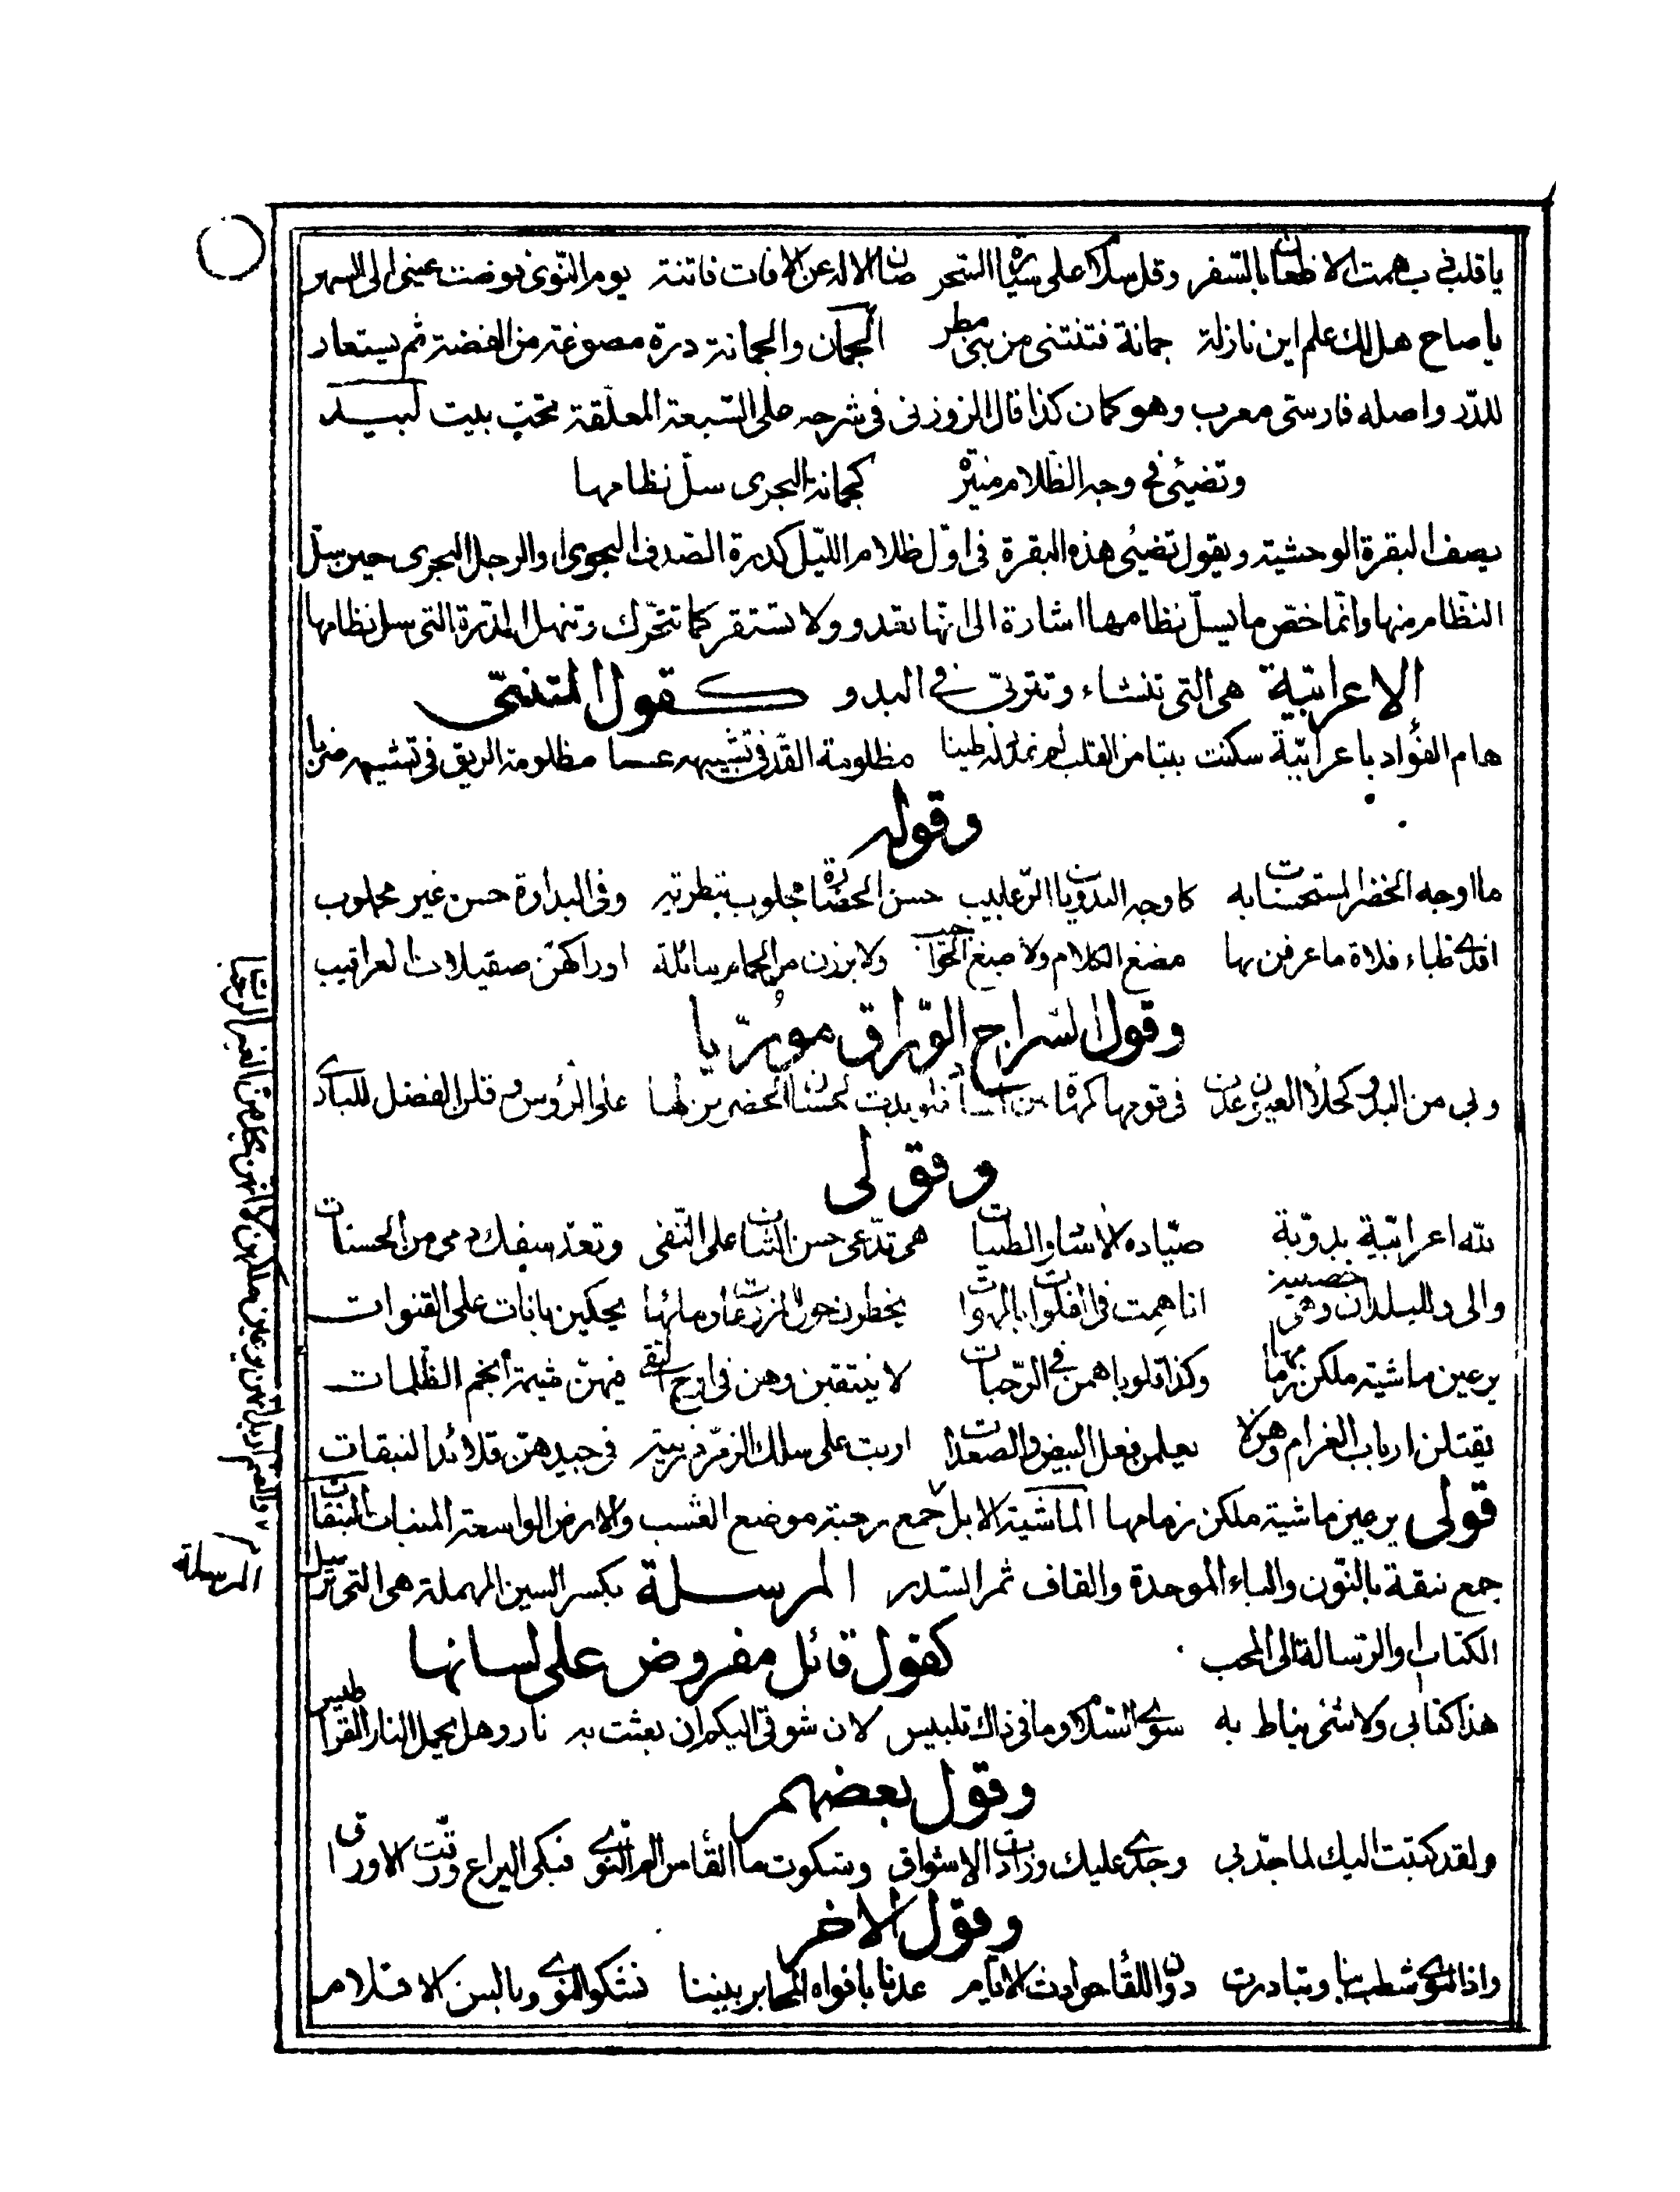 يا قلب همت الاظعان بالسفر وقل سلام على سيارة السحر صان الاله عن الافات فاتنة يوم النوى فوضت عينى الى السهر
يا صاح هل لك علم اين نازلة جمانة فتنتنى من بنى مطر الجمان والجمانة درة مصوغة من الفضة ثم يستعار
للدر واصله فارسى معرب وهو كمان كذا قال الزوزنى فى شرحه على السبعة المعلقة تحت بيت لبيد
وتضيئ فى وجه الظلام منيرة كجمانة البحرى سل نظامها
يصف البقرة الوحشية ويقول تضيئ هذه البقرة فى اول ظلام الليل كدرة الصدف البحرى او الرجل البحرى حين سل
النظام منها وانما خص ما يسل نظامها اشارة الى انها تعدو ولا تستقر كما تتحرك وتنهل الدرة التى سل نظامها
الاعرابية هى التى تنشاء وتتربى فى البدو كقول المتنبى
هام الفؤاد باعرابية سكنت بيتا من القلب لم تمدد له طنبا مظلومة القد فى تشبيهه غصنا مظلومة الريق فى تشبيهه ضربا
وقوله
ما اوجه الحضر المستحسنات به كاوجه البدويات الرعابيب حسن الحضارة مجلوب بتطرية وفى البداوة حسن غير مجلوب
افدى ظباء فلاة ما عرفن بها مضغ الكلام ولا صبغ الحواجب ولا برزن من الحمام مائلة اوراكهن صقيلات العراقيب
وقول السراج الوراق موريا
وبى من البدو كحلاء العيون فى قومها كمهاة بين آساد بدت لحسان الحضر بن لها على الرؤس وقلن الفضل للبادى
وقولى
لله اعرابية بدوية صيادة الاساد والظبيات هى تدعى حسن الثنا على التقى وتعد سفك دمى من الحسنات
والى وللبلدان وهى خصيبة انا همت فى الفلوات بالمهوات يخطرن حول المزن عاد مائها يحكين بانات على القنوات
يرعين ماشية ملكن زمامها وكذا قلوبا همن فى الرحبات لا ينتقبن وهن فى اوج التقى فيهن شيمة انجم الظلمات
يقتلن ارباب الغرام وهؤلا يعلمن فعل البيض والصعدات اربت على سلك الزمرد زينة فى جيدهن قلائد النبقات
قولى يرعين ماشية ملكن زمامها الماشية الابل جمع رحبة موضع العشب والارض الواسعة المنبات النبقات
جمع نبقة بالنون والباء الموحدة والقاف ثمر السدر المرسلة بكسر السين المهملة هى التى ترسل
الكتاب والرسالة الى المحب كقول قائل مفروض على لسانها
هذا كتابى ولا شئ يناط به سوى السلام وما فى ذاك تلبيس لان شوقى اليكم ان بعثت به نار وهل يحمل النار القراطيس
وقول بعضهم
ولقد كتبت اليك لما جد بى وجدى عليك وزادت الاشواق وشكوت ما القاه من الم النوى فبكى اليراع ورقت الاوراق
وقول الاخر
واذا النوى شطت بنا وتبادرت دون اللقا حوادث الايام عدنا بافواه المحابر بيننا نشكو النوى وبالسن الاقلام
المرسلة